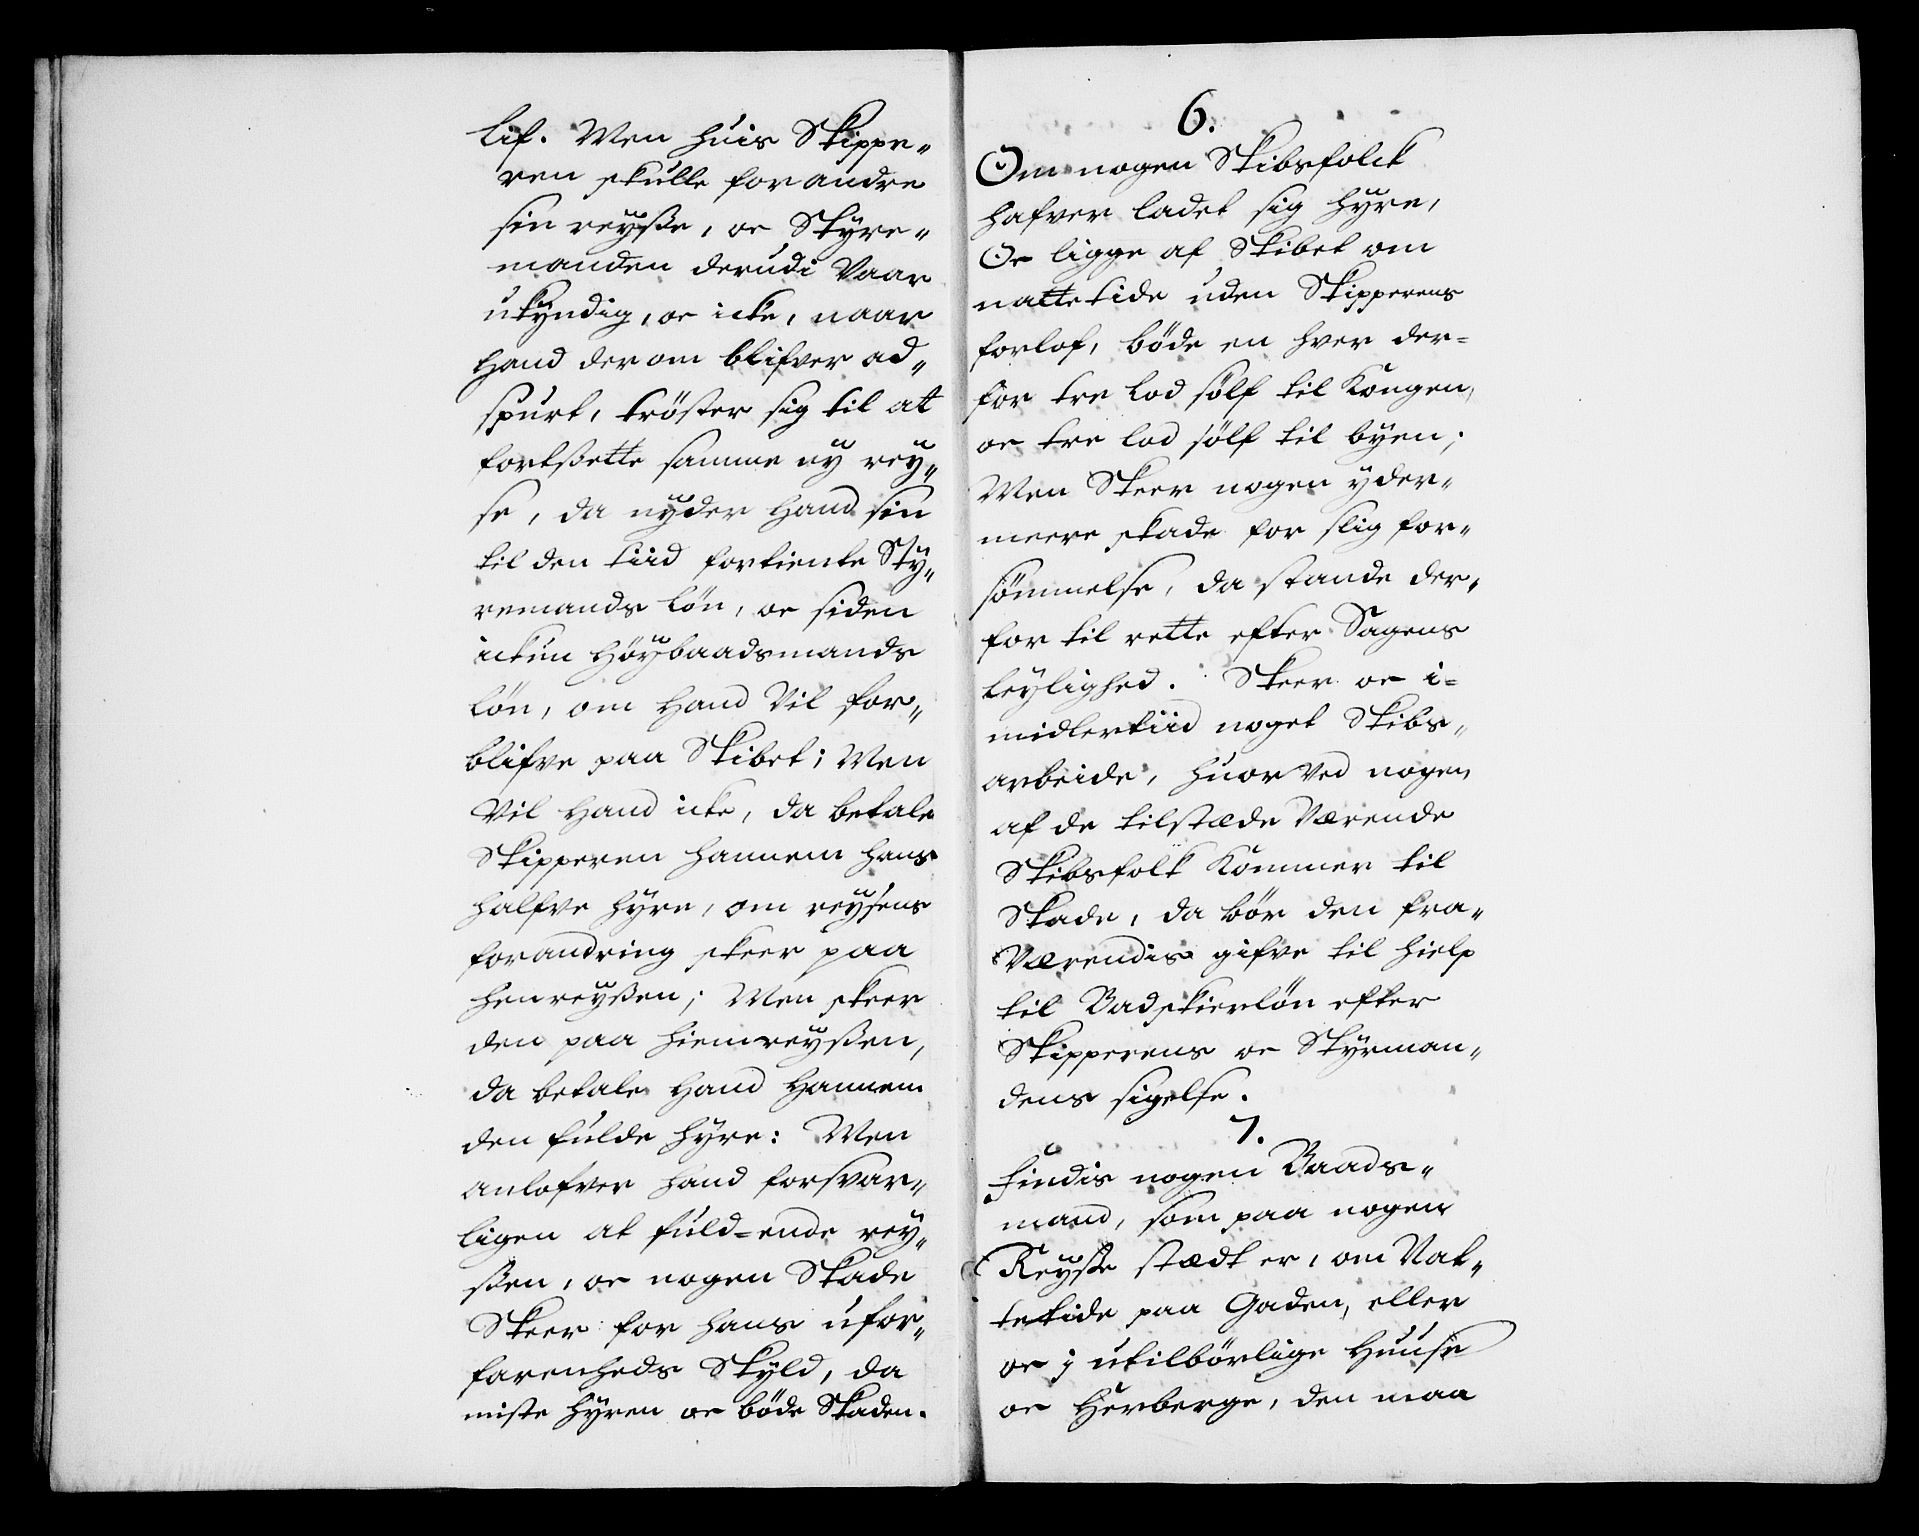 lif. Men huis Skippe„
ren skulle forandre
sin reyße, oc Styre„
manden derudi Vaar
ukyndig, oc icke, naar
hand derom blifver ad„
spurt, tröster sig til at
fortßette samme ny rey„
se, da nyder hand sin
til den tiid fortiente Sty„
remands løn, oc siden
ickun Höybaadsmands
løn, om hand Vil for„
blifve paa Skibet; Men
Vil hand icke, da betale
Skipperen hannem hans
halfve hyre, om reysens
forandring skeer paa
henreyßen; Men skeer
den paa hiemreyßen,
da betale hand hannem
den fulde hyre: Men
anlofver hand forsvar„
ligen at fuld-ende rey„
ßen, oc nogen Skade
Skeer for hans ufor„
farenheds Skyld, da
miste hyren oc bøde Skaden.
6.
Om nogen Skibsfolck
hafver ladet sig hyre,
Oc ligge af Skibet om
nattetide uden Skipperens
forlof, böde en hver der=
for tre lod sölf til Kongen,
oc tre lod sölf til byen;
Men Skeer nogen yder„
meere skade for slig for„
sömmelse, da stande der„
for til rette efter Sagens
leylighed. Skeer oc i=
midlertiid noget Skibs„
arbeide, huor ved nogen
af de tilstæde Værende
Skibsfolk Kommer til
Skade, da bör den fra„
Værendis gifve til hielp
til Badskierløn efter
Skipperens oc Styrman„
dens sigelse.
7.
Findis nogen Baads„
mand, som paa nogen
Reyße stædt er, om Nat„
tetide paa Gaden, eller
oc j utilbörlige Huuse
oc Herberge, den maa